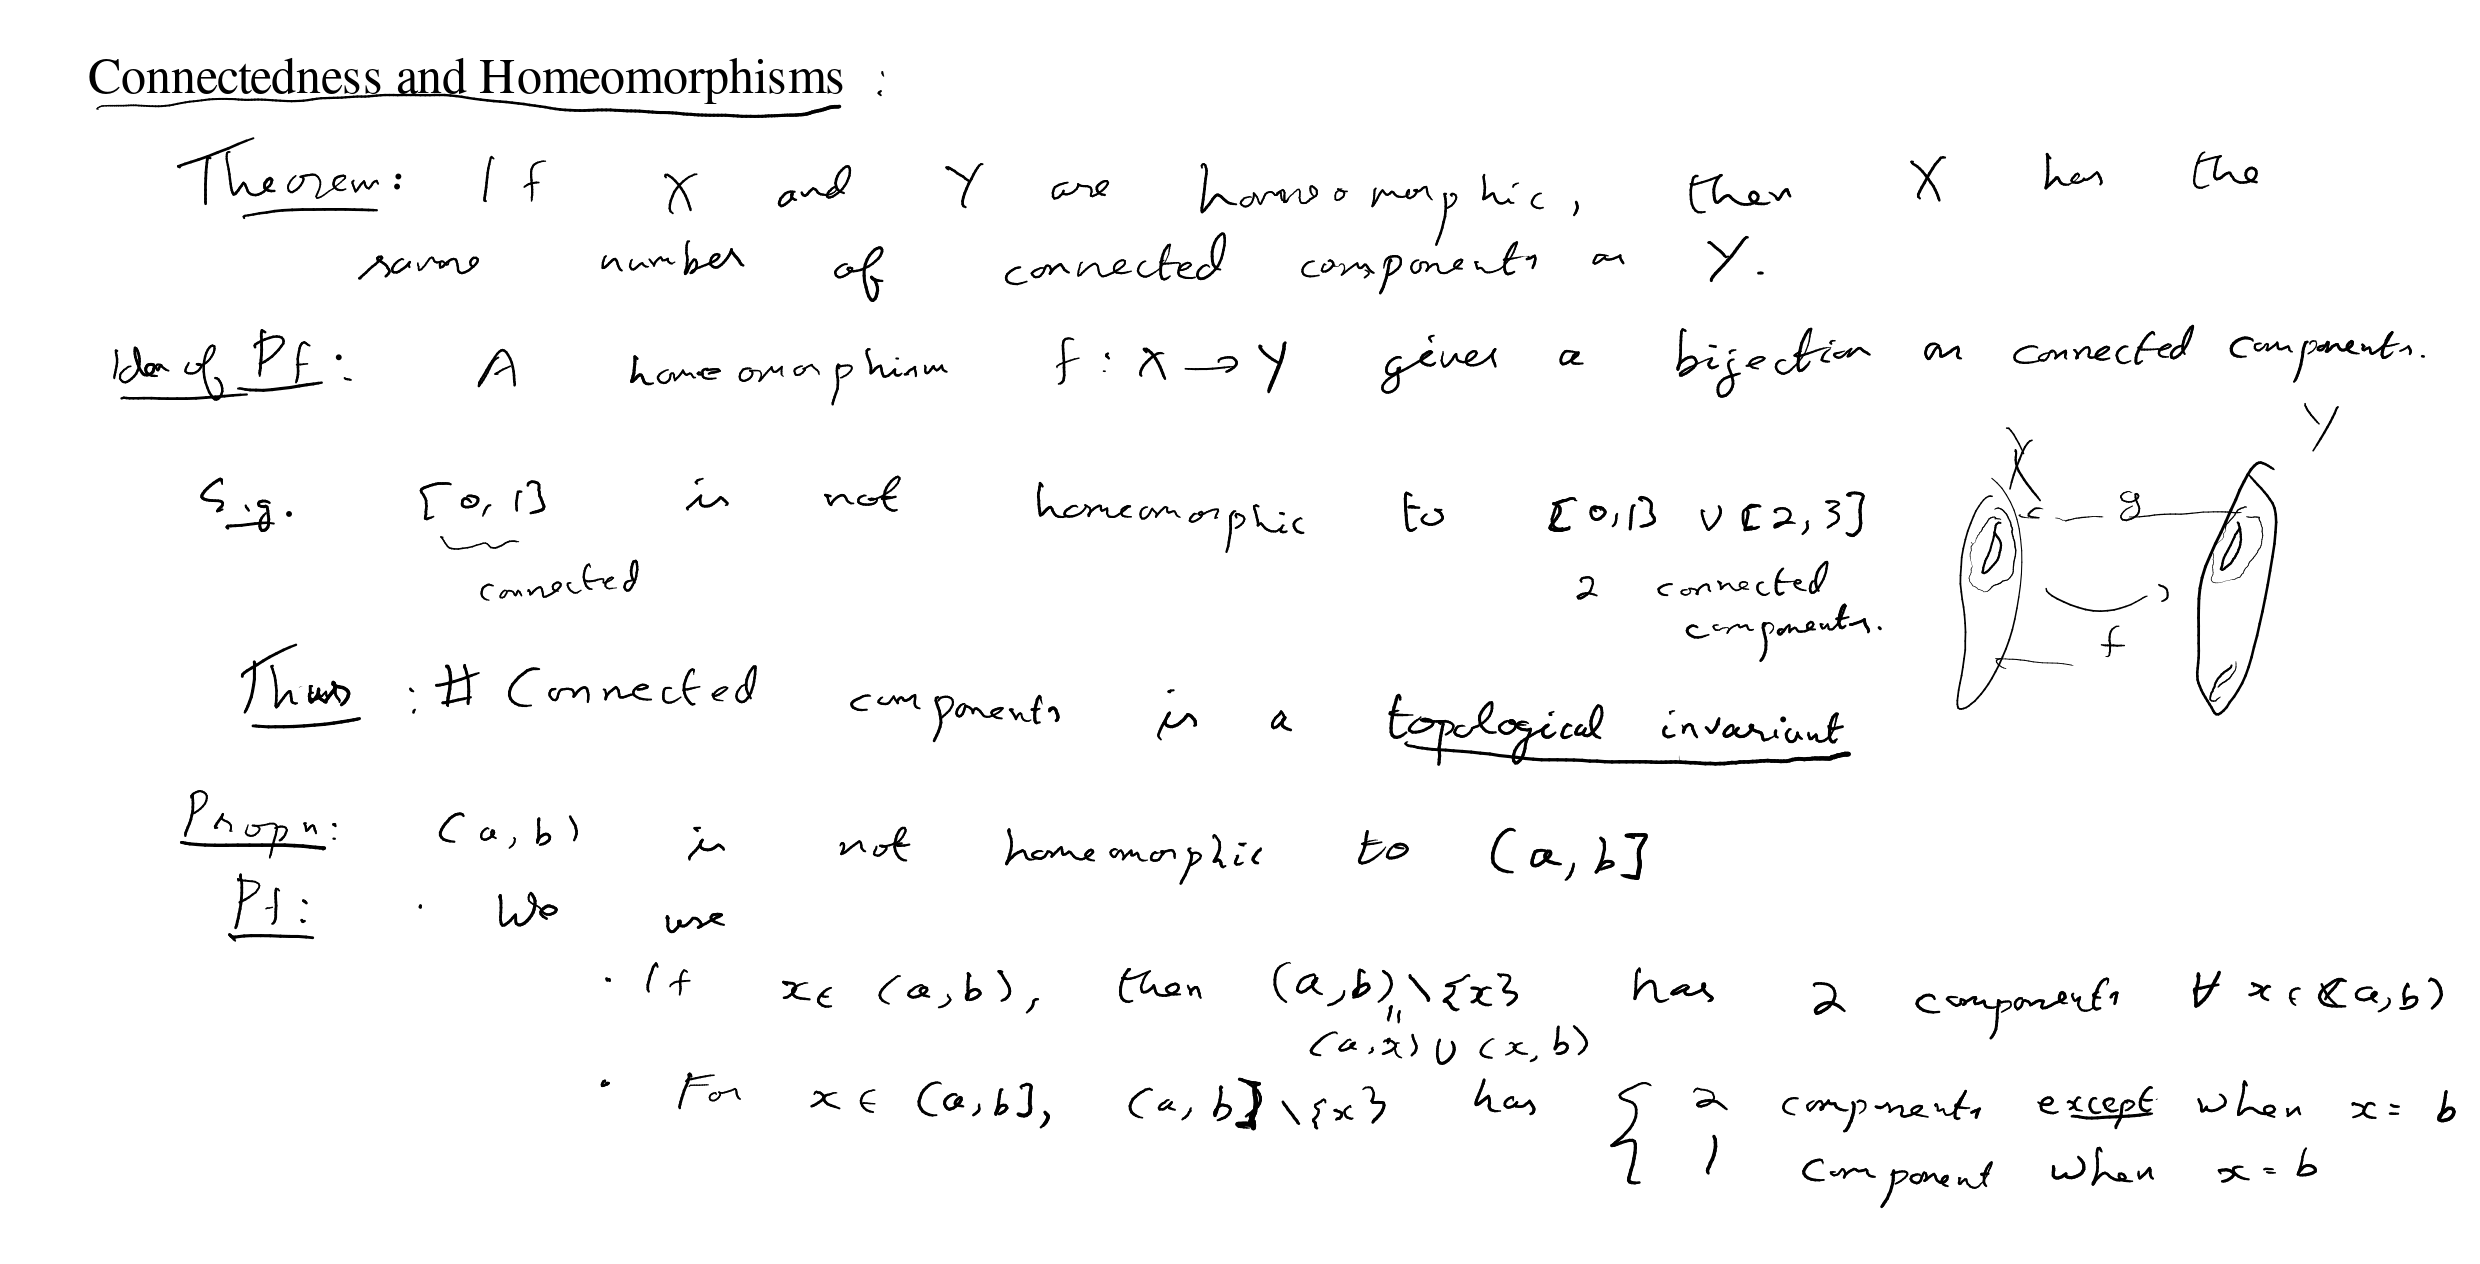 Connectedness and Homeomorphisms :
Theorem: If X and Y are homeomorphic, then X has the
same number of connected components as Y.
Idea of Pf: A homeomorphism f : X → Y gives a bijection on connected components.
X Y
E.g. [0,1] is not homeomorphic to [0,1] ∪ [2,3]
g
connected
2 connected
components.
f
Thus : # Connected components is a topological invariant
Propn: (a,b) is not homeomorphic to (a,b]
Pf: · We use
· If x ∈ (a,b), then (a,b) \ {x} has 2 components ∀ x ∈ (a,b)
"
(a,x) ∪ (x,b)
· For x ∈ (a,b], (a,b] \ {x} has { 2 components except when x = b
1 component when x = b